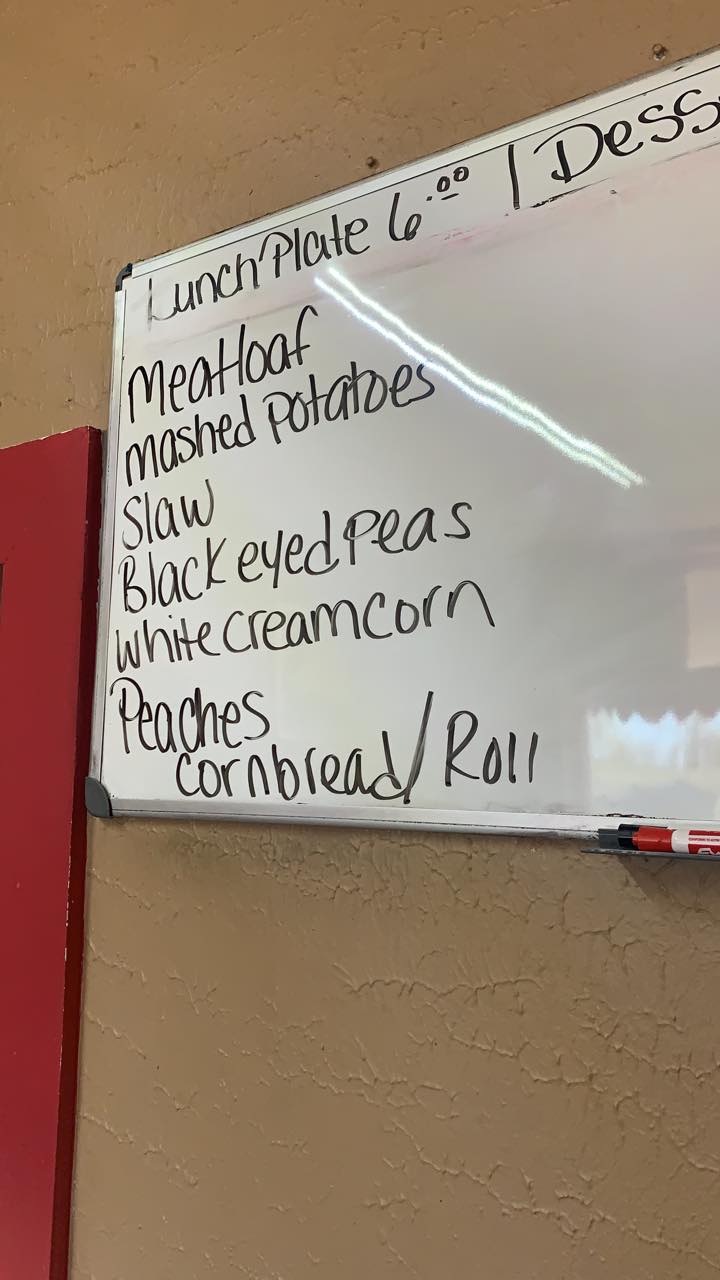 Lunch Plate 6.00 | Dess
Meatloaf
mashed Potatoes
Slaw
Black eyed Peas
white cream corn
Peaches
cornbread/Roll